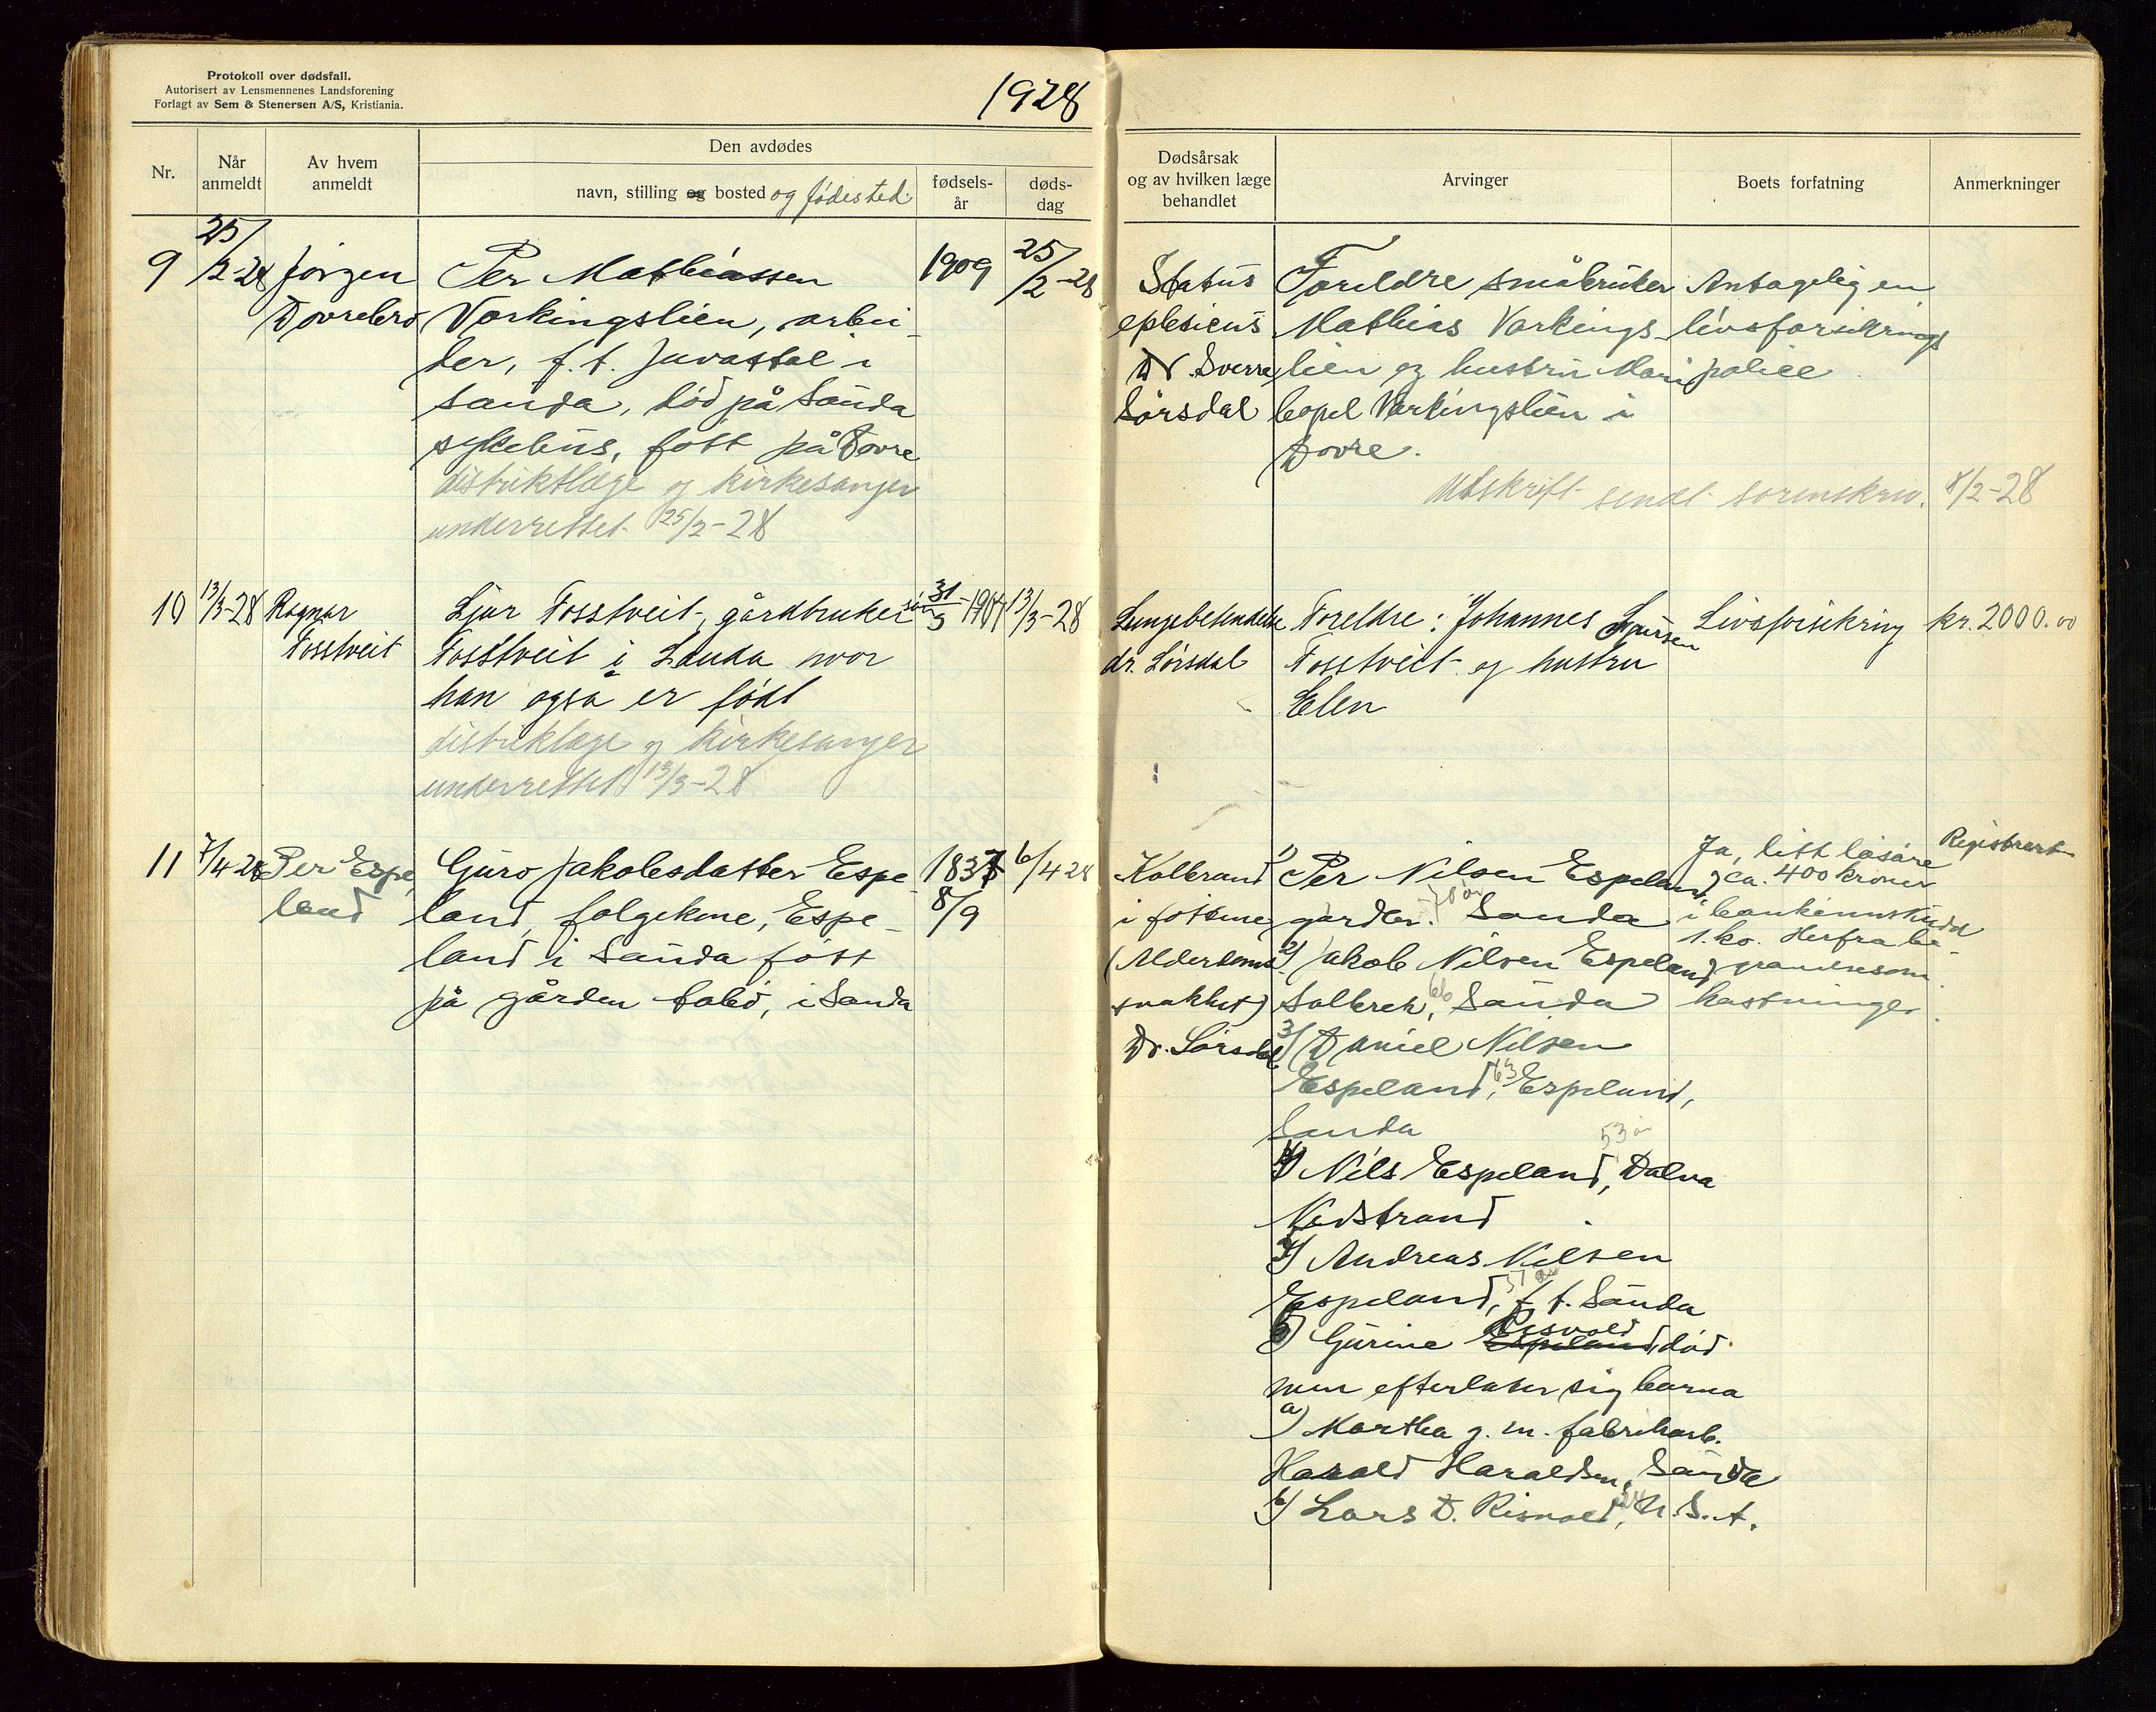 Protokoll over dødsfall.
Autorisert av Lensmennenes Landsforening
Forlagt av Sem & Stenersen A/S, Kristiania.
1928
Nr.
Når anmeldt
Av hvem anmeldt
Den avdødes
navn, stilling og bosted og fødested
fødsels-år
døds-dag
Dødsårsak og av hvilken læge behandlet
Arvinger
Boets forfatning
Anmerkninger
9
25/2-28
Jørgen
Dovrebro
Per Mathiassen
Vorkingslien, arbei-
der, f. t. Juvastøl i
Sauda, död på Sauda
sykehus, födt på Dovre
distriktlæge og kirkesanger
underrettet 25/2-28
1909
25/2-28
Status
eplecicus
Dr. Sverre
Sørsdal
Foreldre småbruker
Mathias Vorkings-
lien og hustru Mari
Vorkingslien i
Dovre.
Antagelig en
livsforsikrings
police
Utskrift sendt sorenskriv. 8/2-28
10
13/3-28
Ragnar
Fosstveit
Sjur Fosstveit, gårdbrukersøn
Fosstveit i Sauda hvor
han også er født
distriktlæge og kirkesanger
underrettet 13/3-28
31/3-1907
13/3-28
Lungebetendelse
dr. Sørsdal
Foreldre: Johannes Sjursen
Fosstveit og hustru
Elen
Livsforsikring
kr. 2000.00
11
7/4-28
Per Espe
land
Guro Jakobsdatter Espe-
land, folgekone, Espe-
land i Sauda født
på gården i Sauda
1837
8/9
6/4 28
Kolbrand
i føttene
(Alderdoms
svakhet)
Dr. Sørsdal
1) Per Nilsen Espeland
gårdbr. 70 år Sauda
2) Jakob Nilsen Espeland
Solbrek, 66 Sauda
3) Daniel Nilsen
Espeland, 63 Espeland,
Sauda
53 år
4) Nils Espeland, Dalva
Nedstrand
5) Andreas Nilsen
Espeland, 51 år f. t. Sauda
Risvold
6) Gurine Espeland, död
men efterlater sig barna
a) Martha g. m. fabrikarb.
Harald Haraldsen, Sauda
b) Lars D. Risvold, U. S. A.
Ja, litt løsøre
og ca. 400 kroner
i bankinnskudd
1 ko. Herfra be-
gravelsesom
kostninger.
Registrert